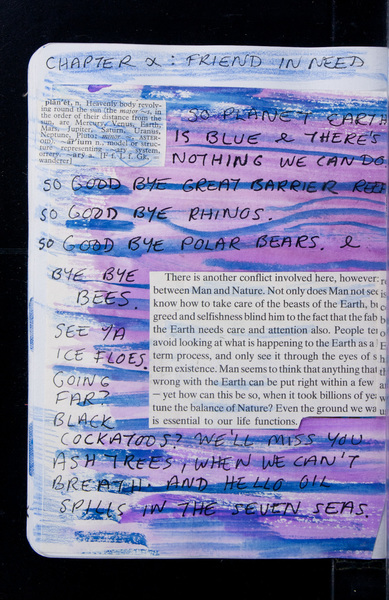 CHAPTER α: FRIEND IN NEED
plan'et, n. Heavenly body revolv-
ing round the sun (the major ~s, in
the order of their distance from the
sun, are Mercury, Venus, Earth,
Mars, Jupiter, Saturn, Uranus,
Neptune, Pluto; minor ~, ASTER-
OID). ~ār'ium n., model or struc-
ture representing ~ary system,
orrery. ~ary a. [F f. L f. Gk,
wanderer]
SO PLANET EARTH
IS BLUE & THERE'S
NOTHING WE CAN DO
SO GOOD BYE GREAT BARRIER REEF
SO GOOD BYE RHINOS.
SO GOOD BYE POLAR BEARS. &
BYE BYE
BEES.
SEE YA
ICE FLOES.
GOING
FAR?
BLACK
COCKATOOS? WE'LL MISS YOU
ASH TREES, WHEN WE CAN'T
BREATH. AND HELLO OIL
SPILLS IN THE SEVEN SEAS.
There is another conflict involved here, however:
between Man and Nature. Not only does Man not
know how to take care of the beasts of the Earth,
greed and selfishness blind him to the fact that the
the Earth needs care and attention also. People
avoid looking at what is happening to the Earth as a
term process, and only see it through the eyes of
term existence. Man seems to think that anything
wrong with the Earth can be put right within a few
– yet how can this be so, when it took billions of
tune the balance of Nature? Even the ground we
is essential to our life functions.